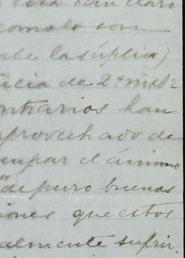 tan claro
como lo son
abe la súplica)
ilia de 2º
ontrarios han
aprovechado de
upar el ánimo
de puro buenas
iones que estos
almente sufrir.